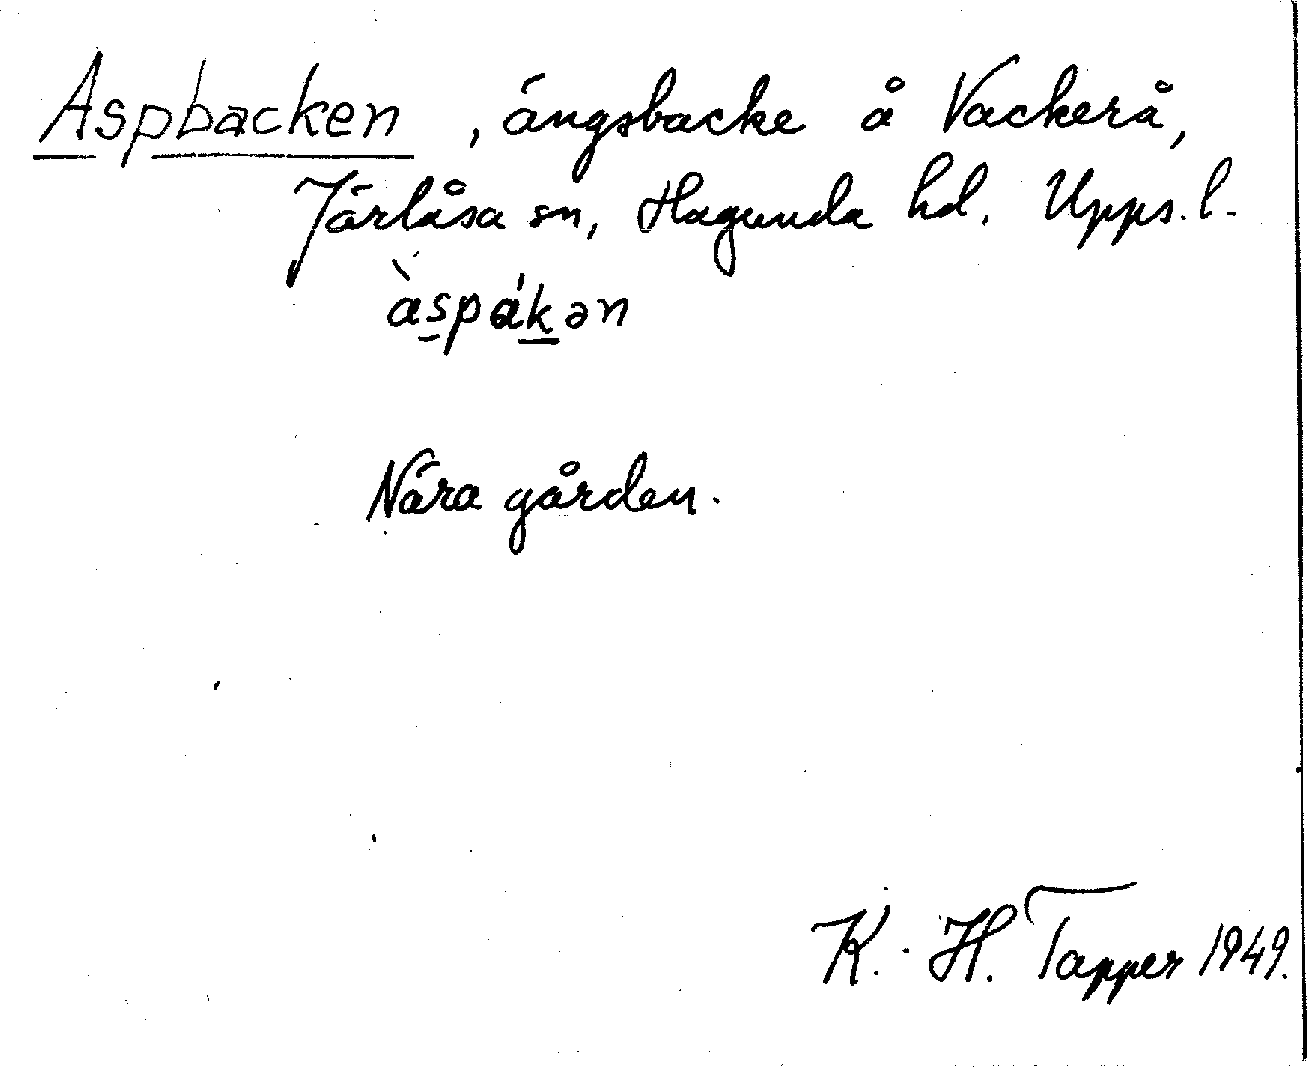 Aspbacken, ängsbacke å Vackerå,
Järlåsa sn, Hagunda hd. Upps. l.
àspákən
Nära gården.
K.-H. Tapper 1949.